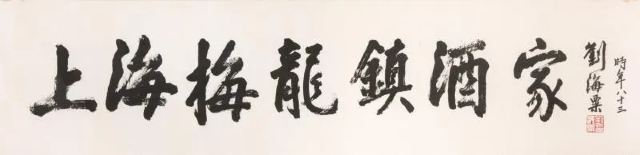 上海梅龍鎮酒家
劉海粟
時年八十三